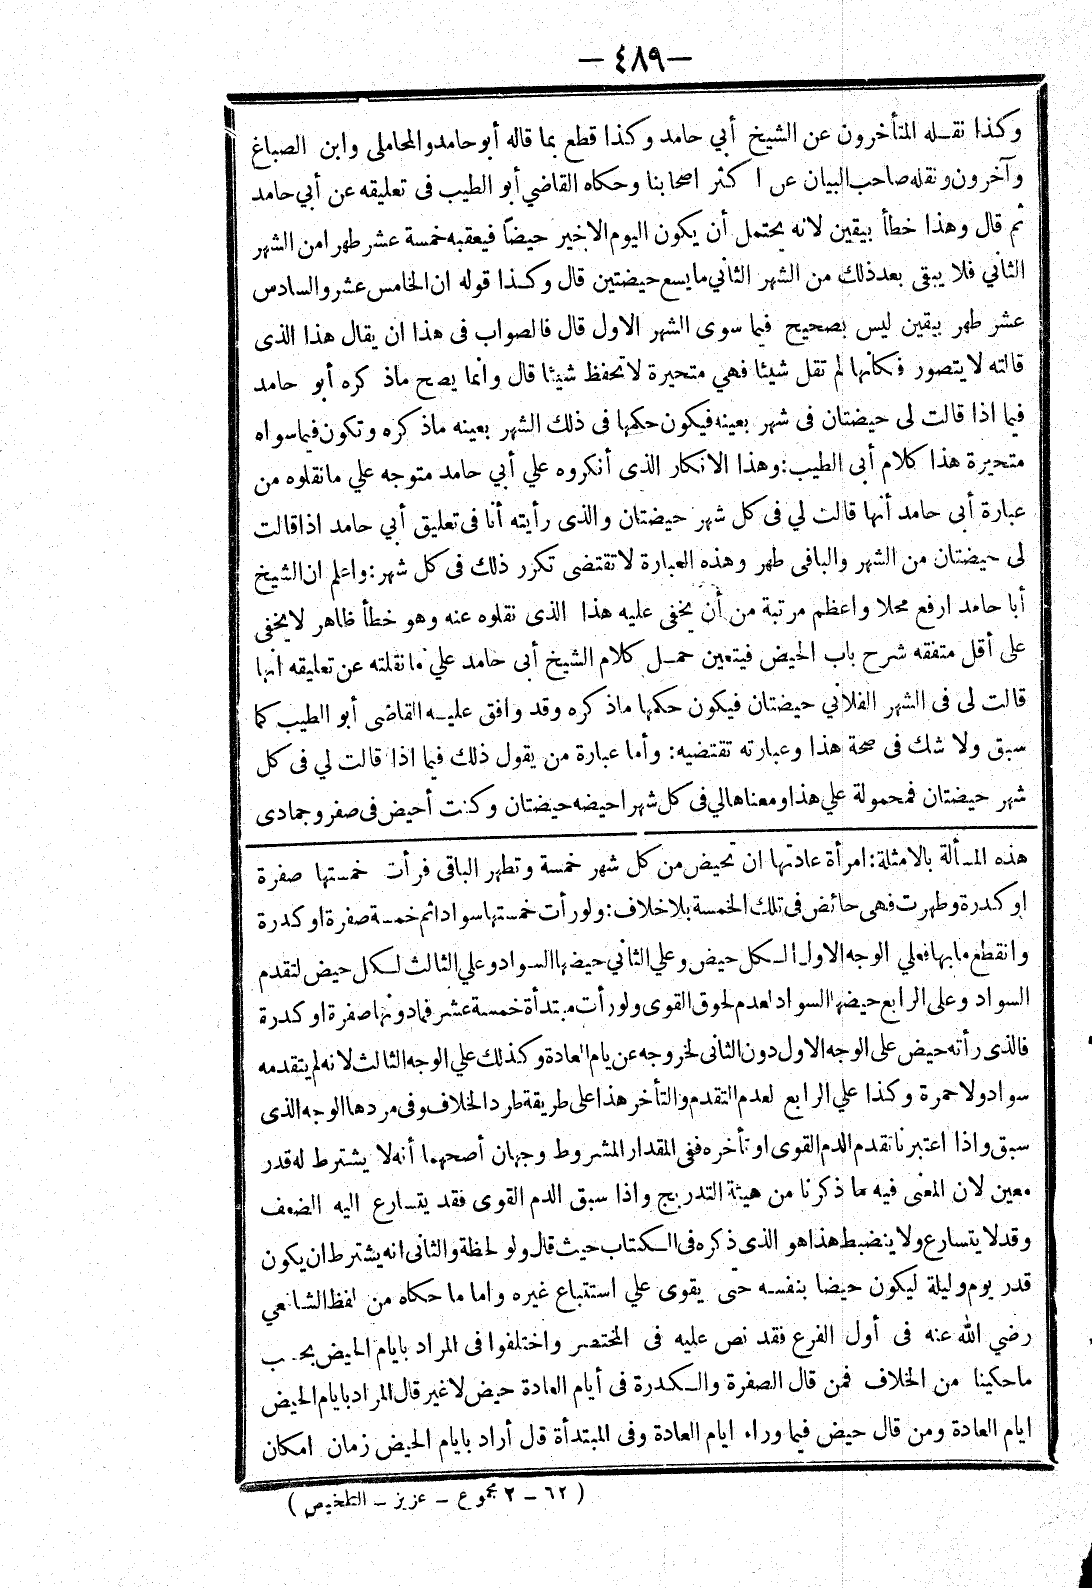 — ٤٨٩ —
وكذا نقله المتأخرون عن الشيخ أبي حامد وكذا قطع بما قاله أبو حامد والمحاملى وابن الصباغ
وآخرون ونقله صاحب البيان عن اكثر اصحابنا وحكاه القاضي أبو الطيب فى تعليقه عن أبي حامد
ثم قال وهذا خطأ بيقين لانه يحتمل أن يكون اليوم الاخير حيضاً فيعقبه خمسة عشر طهرا من الشهر
الثاني فلا يبقى بعد ذلك من الشهر الثاني ما يسع حيضتين قال وكذا قوله ان الخامس عشر والسادس
عشر طهر بيقين ليس بصحيح فيما سوى الشهر الاول قال فالصواب فى هذا ان يقال هذا الذى
قالته لا يتصور فكأنها لم تقل شيئا فهي متحيرة لا تحفظ شيئا قال وانما يصح ماذكره أبو حامد
فيما اذا قالت لى حيضتان فى شهر بعينه فيكون حكمها فى ذلك الشهر بعينه ماذكره وتكون فيما سواه
متحيرة هذا كلام أبى الطيب: وهذا الانكار الذى أنكروه علي أبي حامد متوجه علي مانقلوه من
عبارة أبى حامد أنها قالت لي فى كل شهر حيضتان والذى رأيته أنا فى تعليق أبي حامد اذا قالت
لى حيضتان من الشهر والباقى طهر وهذه العبارة لا تقتضى تكرر ذلك فى كل شهر: واعلم ان الشيخ
أبا حامد ارفع محلا واعظم مرتبة من أن يخفى عليه هذا الذى نقلوه عنه وهو خطأ ظاهر لا يخفى
على أقل متفقه شرح باب الحيض فيتعين حمل كلام الشيخ أبى حامد علي ما نقلته عن تعليقه انها
قالت لى فى الشهر الفلاني حيضتان فيكون حكمها ماذكره وقد وافق عليه القاضى أبو الطيب كما
سبق ولا شك فى صحة هذا وعبارته تقتضيه: وأما عبارة من يقول ذلك فيما اذا قالت لي فى كل
شهر حيضتان فمحمولة علي هذا ومعناها لي فى كل شهر احيضه حيضتان وكنت أحيض فى صفر وجمادى
هذه المسألة بالامثلة: امرأة عادتها ان تحيض من كل شهر خمسة وتطهر الباقى فرأت خمستها صفرة
او كدرة وطهرت فهى حائض فى تلك الخمسة بلا خلاف: ولو رأت خمستها سوادا ثم خمسة صفرة او كدرة
وانقطع ما بها فعلي الوجه الاول الكل حيض وعلي الثاني حيضها السواد وعلي الثالث الكل حيض لتقدم
السواد وعلى الرابع حيضها السواد لعدم لحوق القوى ولو رأت مبتدأة خمسة عشر فما دونها صفرة او كدرة
فالذى رأته حيض على الوجه الاول دون الثانى لخروجه عن يام العادة وكذلك علي الوجه الثالث لانه لم يتقدمه
سواد ولا حمرة وكذا علي الرابع لعدم التقدم والتأخر هذا على طريقة طرد الخلاف وفى مردها الوجه الذى
سبق واذا اعتبرنا تقدم الدم القوى او تأخره ففى المقدار المشروط وجهان أصحهما أنه لا يشترط له قدر
معين لان المعنى فيه ما ذكرنا من هيئة التدريج واذا سبق الدم القوى فقد يتسارع اليه الضعف
وقد لا يتسارع ولا ينضبط هذا هو الذى ذكره فى الكتاب حيث قال ولو لحظة والثانى انه يشترط ان يكون
قدر يوم وليلة ليكون حيضا بنفسه حتى يقوى علي استتباع غيره واما ما حكاه من لفظ الشافعي
رضي الله عنه فى أول الفرع فقد نص عليه فى المختصر واختلفوا فى المراد بايام الحيض بحسب
ما حكينا من الخلاف فمن قال الصفرة والكدرة فى أيام العادة حيض لا غير قال المراد بايام الحيض
ايام العادة ومن قال حيض فيما وراء ايام العادة وفى المبتدأة قل أراد بايام الحيض زمان امكان
( ٦٢ – ٢ مجموع – عزيز – التلخيص )